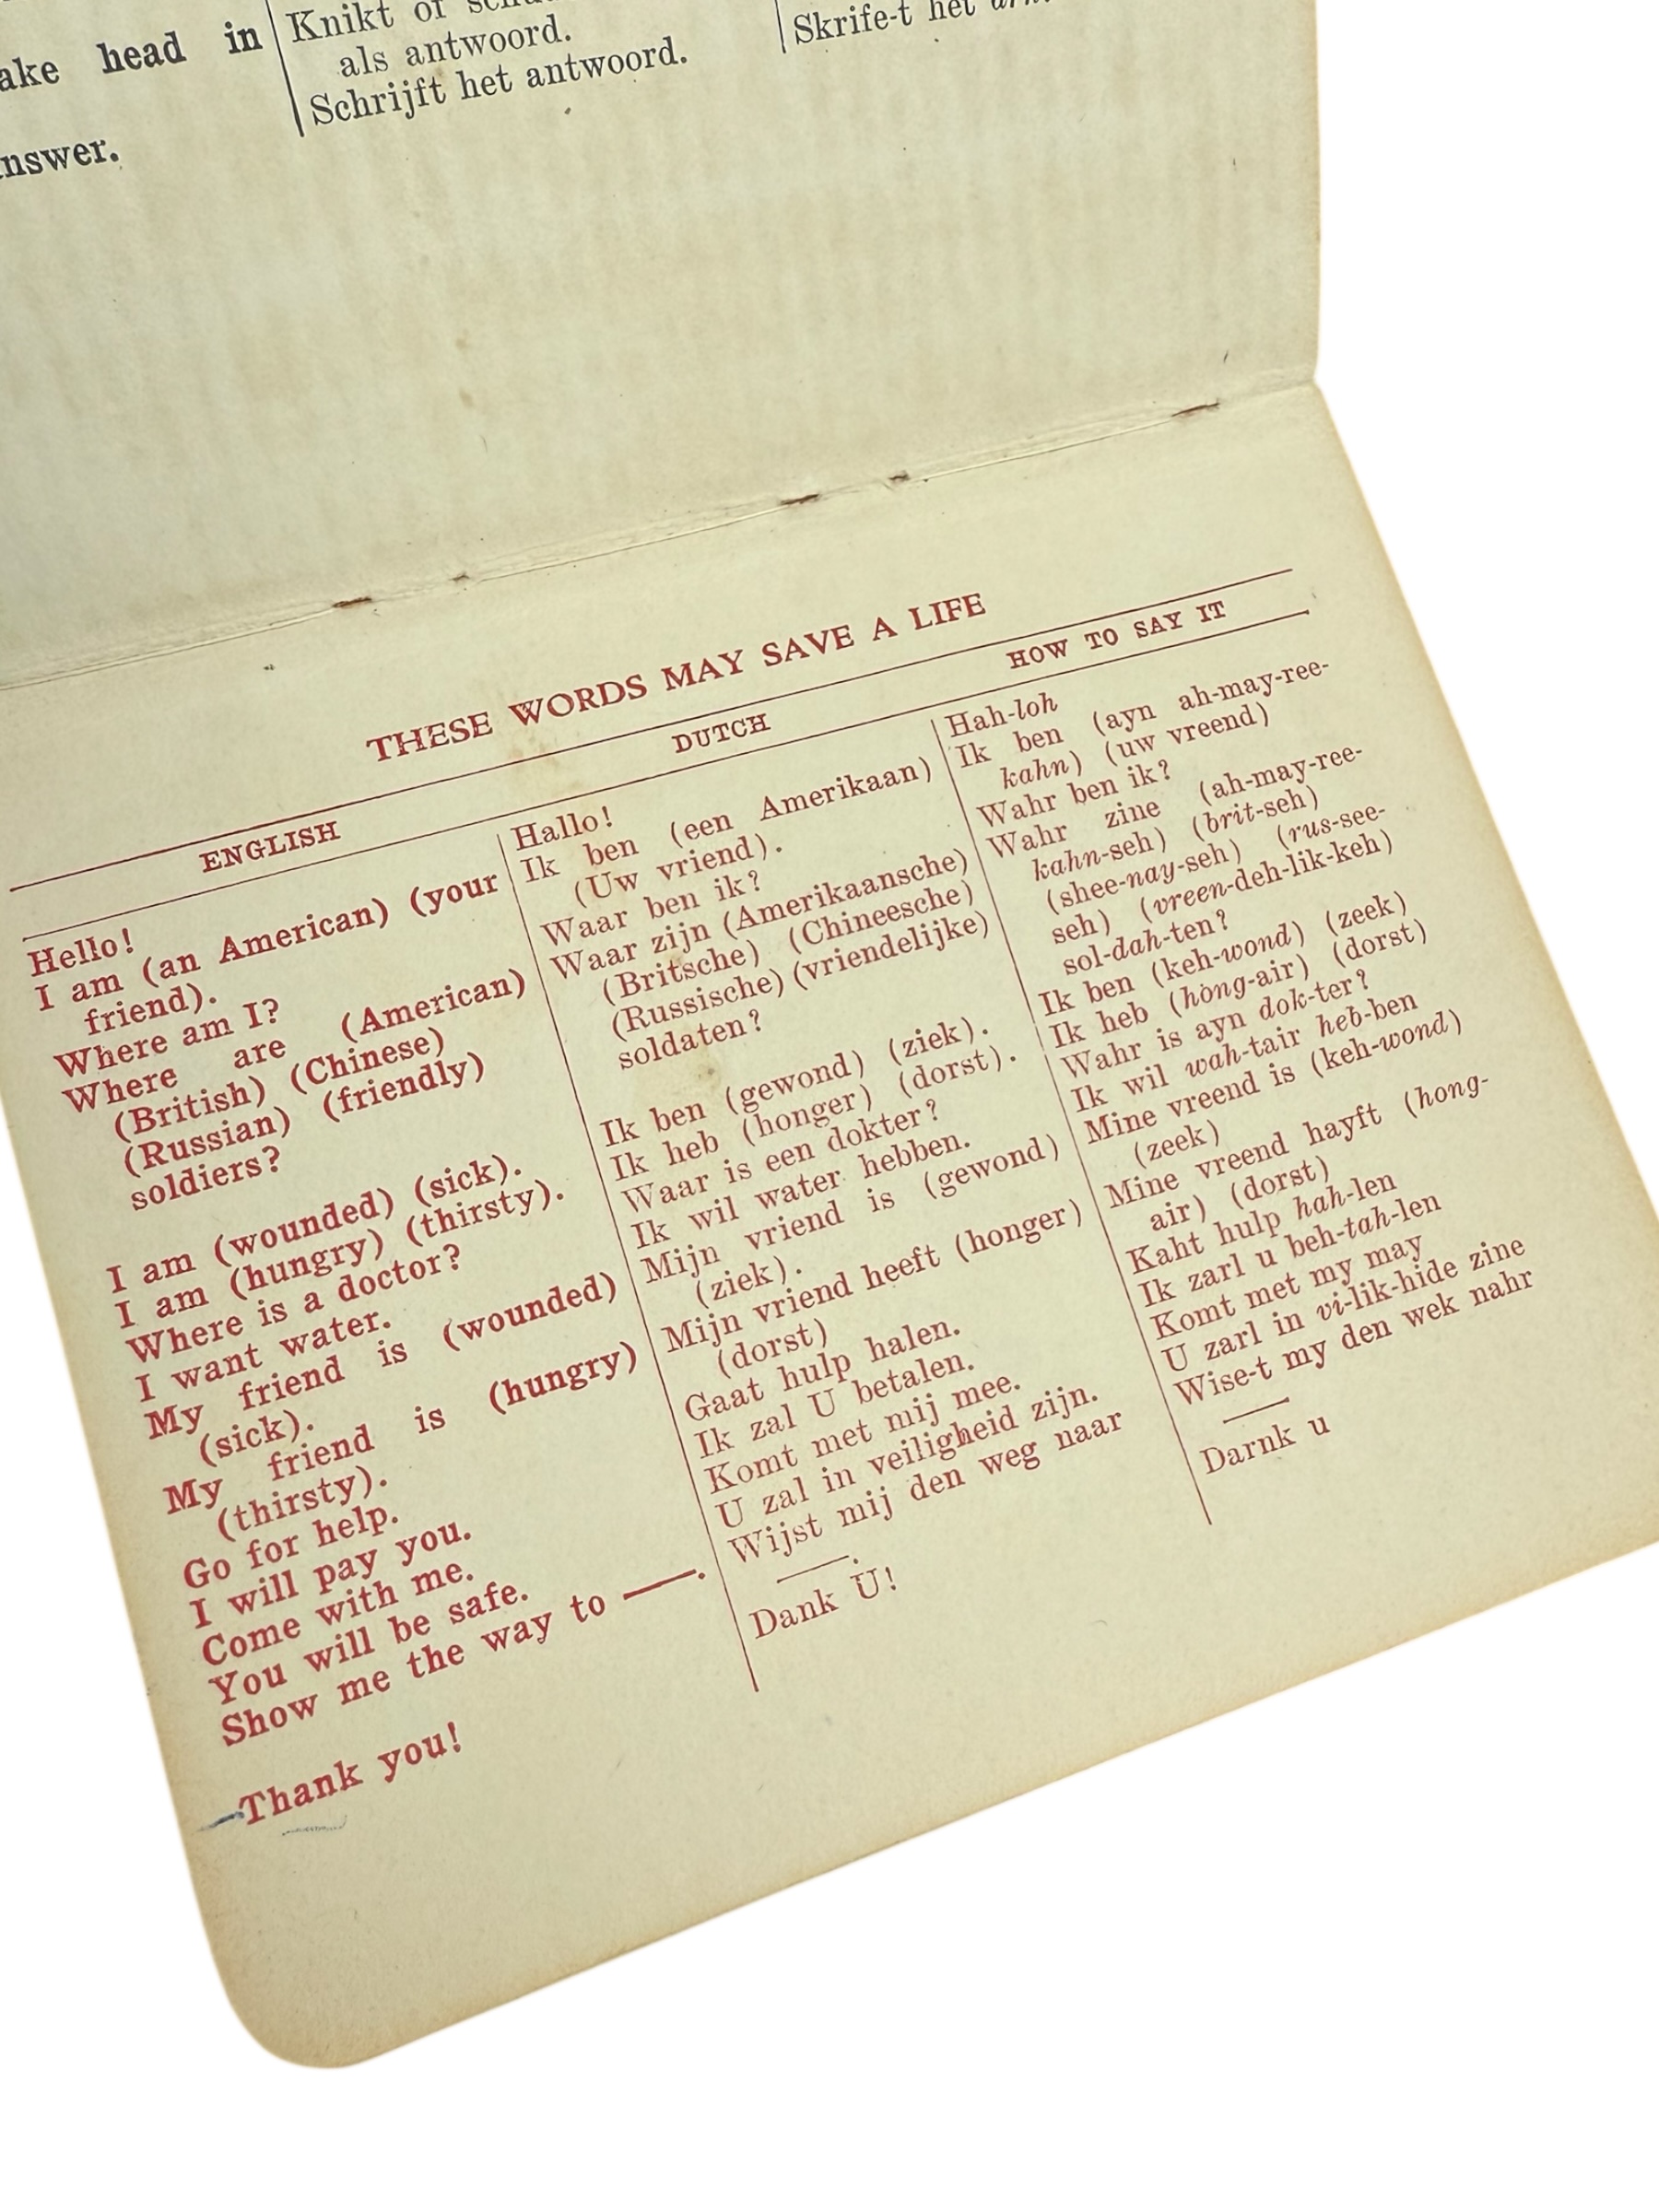 ake head in
nswer.
Knikt of
als antwoord.
Schrijft het antwoord.
Skrife-t het
THESE WORDS MAY SAVE A LIFE
ENGLISH
Hello!
I am (an American) (your
friend).
Where am I?
Where are (American)
(British) (Chinese)
(Russian) (friendly)
soldiers?
I am (wounded) (sick).
I am (hungry) (thirsty).
Where is a doctor?
I want water.
My friend is (wounded)
(sick).
My friend is (hungry)
(thirsty).
Go for help.
I will pay you.
Come with me.
You will be safe.
Show me the way to —.
Thank you!
DUTCH
Hallo!
Ik ben (een Amerikaan)
(Uw vriend).
Waar ben ik?
Waar zijn (Amerikaansche)
(Britsche) (Chineesche)
(Russische) (vriendelijke)
soldaten?
Ik ben (gewond) (ziek).
Ik heb (honger) (dorst).
Waar is een dokter?
Ik wil water hebben.
Mijn vriend is (gewond)
(ziek).
Mijn vriend heeft (honger)
(dorst)
Gaat hulp halen.
Ik zal U betalen.
Komt met mij mee.
U zal in veiligheid zijn.
Wijst mij den weg naar
—.
Dank U!
HOW TO SAY IT
Hah-loh
Ik ben (ayn ah-may-ree-
kahn) (uw vreend)
Wahr ben ik?
Wahr zine (ah-may-ree-
kahn-seh) (brit-seh)
(shee-nay-seh) (rus-see-
seh) (vreen-deh-lik-keh)
sol-dah-ten?
Ik ben (keh-wond) (zeek)
Ik heb (hong-air) (dorst)
Wahr is ayn dok-ter?
Ik wil wah-tair heb-ben
Mine vreend is (keh-wond)
(zeek)
Mine vreend hayft (hong-
air) (dorst)
Kaht hulp hah-len
Ik zarl u beh-tah-len
Komt met my may
U zarl in vi-lik-hide zine
Wise-t my den wek nahr
—
Darnk u